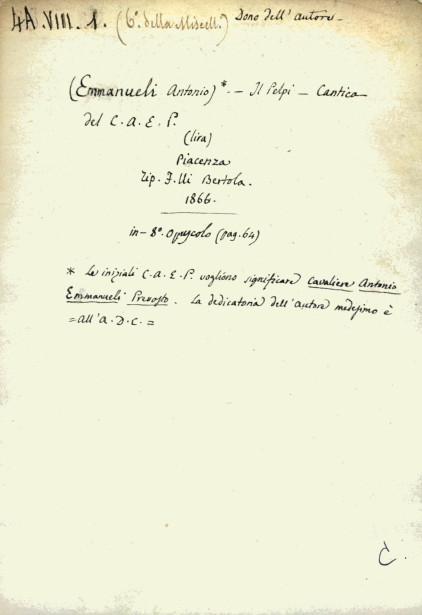 4A.VIII.1. (6°. della Miscell.) Dono dell'autore-
(Emmanueli Antonio)*.- Il Pelpi - Cantica
del C. A. E. P.
(lira)
Piacenza
Tip. F.lli Bertola.
1866.
in-8°. Opuscolo (pag. 64)
* Le iniziali C.A.E.P. vogliono significare Cavaliere Antonio
Emmanueli Prevosto. La dedicatoria dell'Autore medesimo è
=all'A.D.C.=
C.